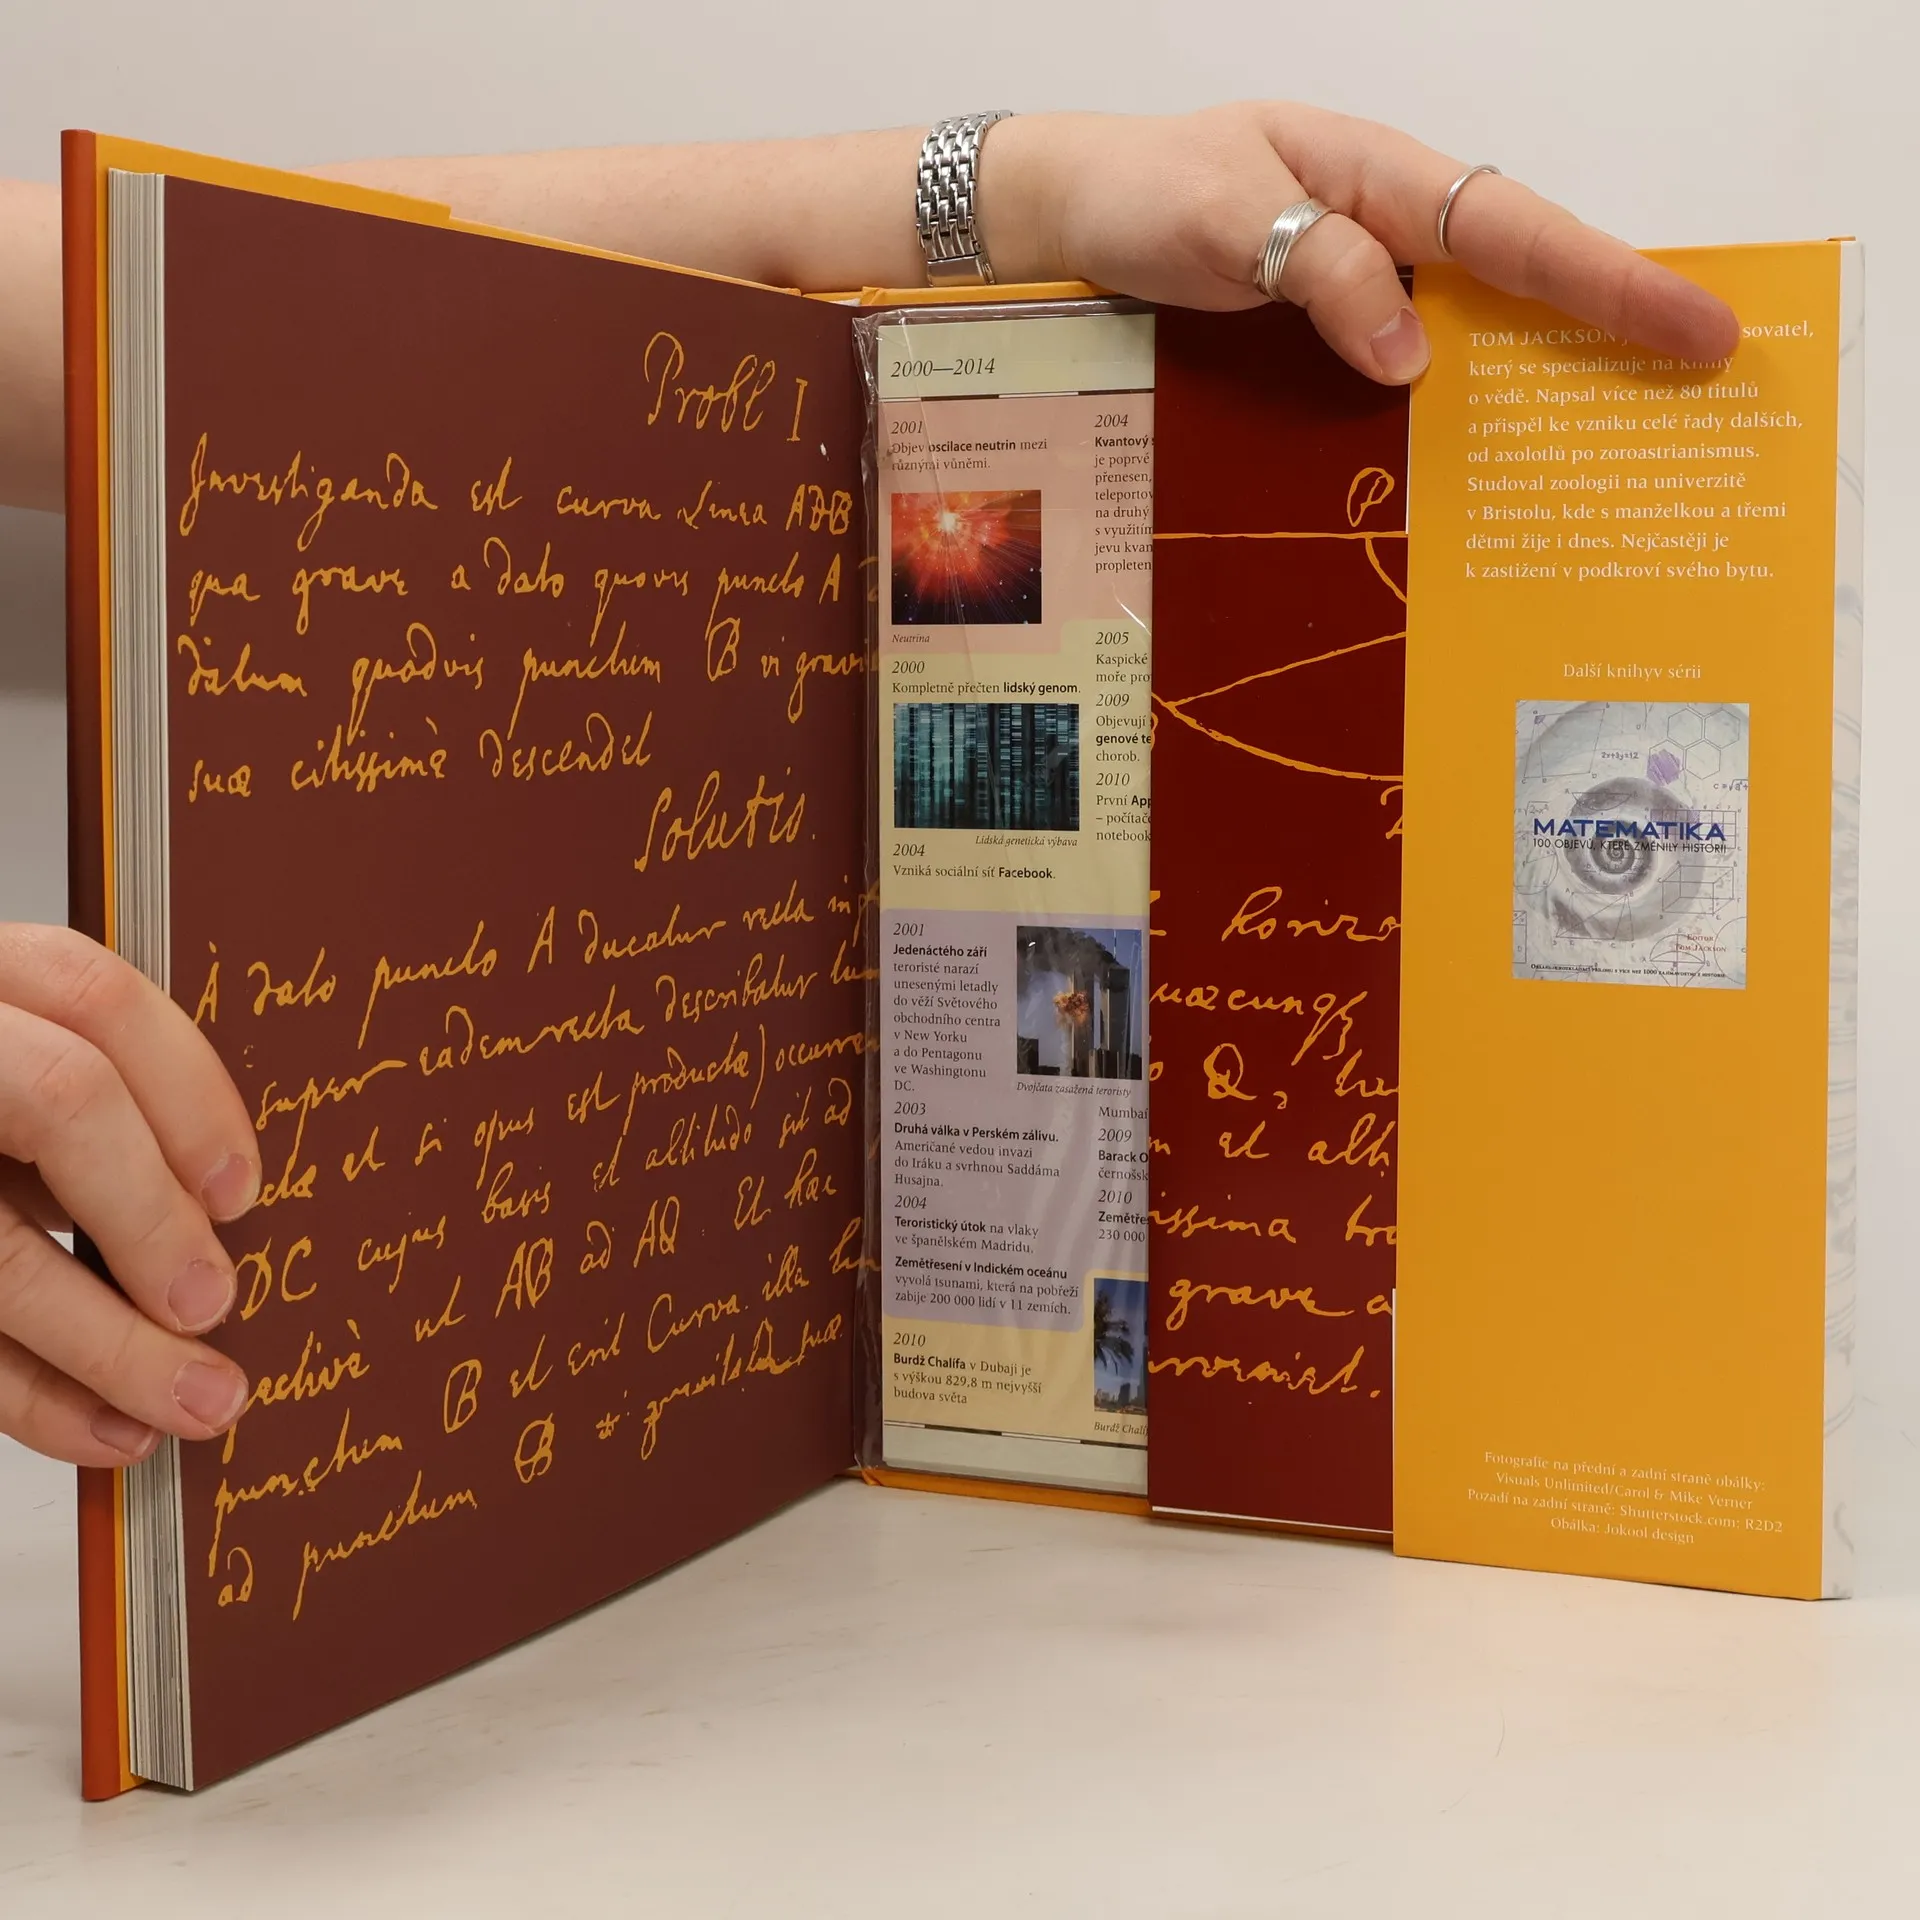 Probl I
Investiganda est curva Linea ADB
qua grave a dato quovis puncto A
datum quodvis punctum B vi gravi
suæ citissimè descendet
Solutio.
A dato puncto A ducatur recta inf
super eadem recta describatur
et si opus est producta) occurre
DC cujus basis et altitudo sit ad
ut AB ad AQ. Et hæc
punctum B et erit Curva illa
ad punctum B
2000—2014
2001
Objev oscilace neutrin mezi
různými vůněmi.
Neutrina
2000
Kompletně přečten lidský genom.
Lidská genetická výbava
2004
Vzniká sociální síť Facebook.
2001
Jedenáctého září
teroristé narazí
unesenými letadly
do věží Světového
obchodního centra
v New Yorku
a do Pentagonu
ve Washingtonu
DC.
Dvojčata zasažená teroristy
2003
Druhá válka v Perském zálivu.
Američané vedou invazi
do Iráku a svrhnou Saddáma
Husajna.
2004
Teroristický útok na vlaky
ve španělském Madridu.
Zemětřesení v Indickém oceánu
vyvolá tsunami, která na pobřeží
zabije 200 000 lidí v 11 zemích.
2010
Burdž Chalífa v Dubaji je
s výškou 829,8 m nejvyšší
budova světa
2004
Kvantový
je poprvé
přenesen,
teleportov
na druhý
s využitím
jevu kvan
propleten
2005
Kaspické
moře pro
2009
Objevují
genové te
chorob.
2010
První App
– počítač
notebook
Mumbai
2009
Barack O
černošsk
2010
Zemětře
230 000
Burdž Chalíf
P
horizo
uæcunq
Q,
et alt
issima
grave a
TOM JACKSON sovatel,
který se specializuje na knihy
o vědě. Napsal více než 80 titulů
a přispěl ke vzniku celé řady dalších,
od axolotlů po zoroastrianismus.
Studoval zoologii na univerzitě
v Bristolu, kde s manželkou a třemi
dětmi žije i dnes. Nejčastěji je
k zastižení v podkroví svého bytu.
Další knihyv sérii
2x+3y=12
MATEMATIKA
100 OBJEVŮ, KTERÉ ZMĚNILY HISTORII
EDITOR
TOM JACKSON
Fotografie na přední a zadní straně obálky:
Visuals Unlimited/Carol & Mike Verner
Pozadí na zadní straně: Shutterstock.com: R2D2
Obálka: Jokool design